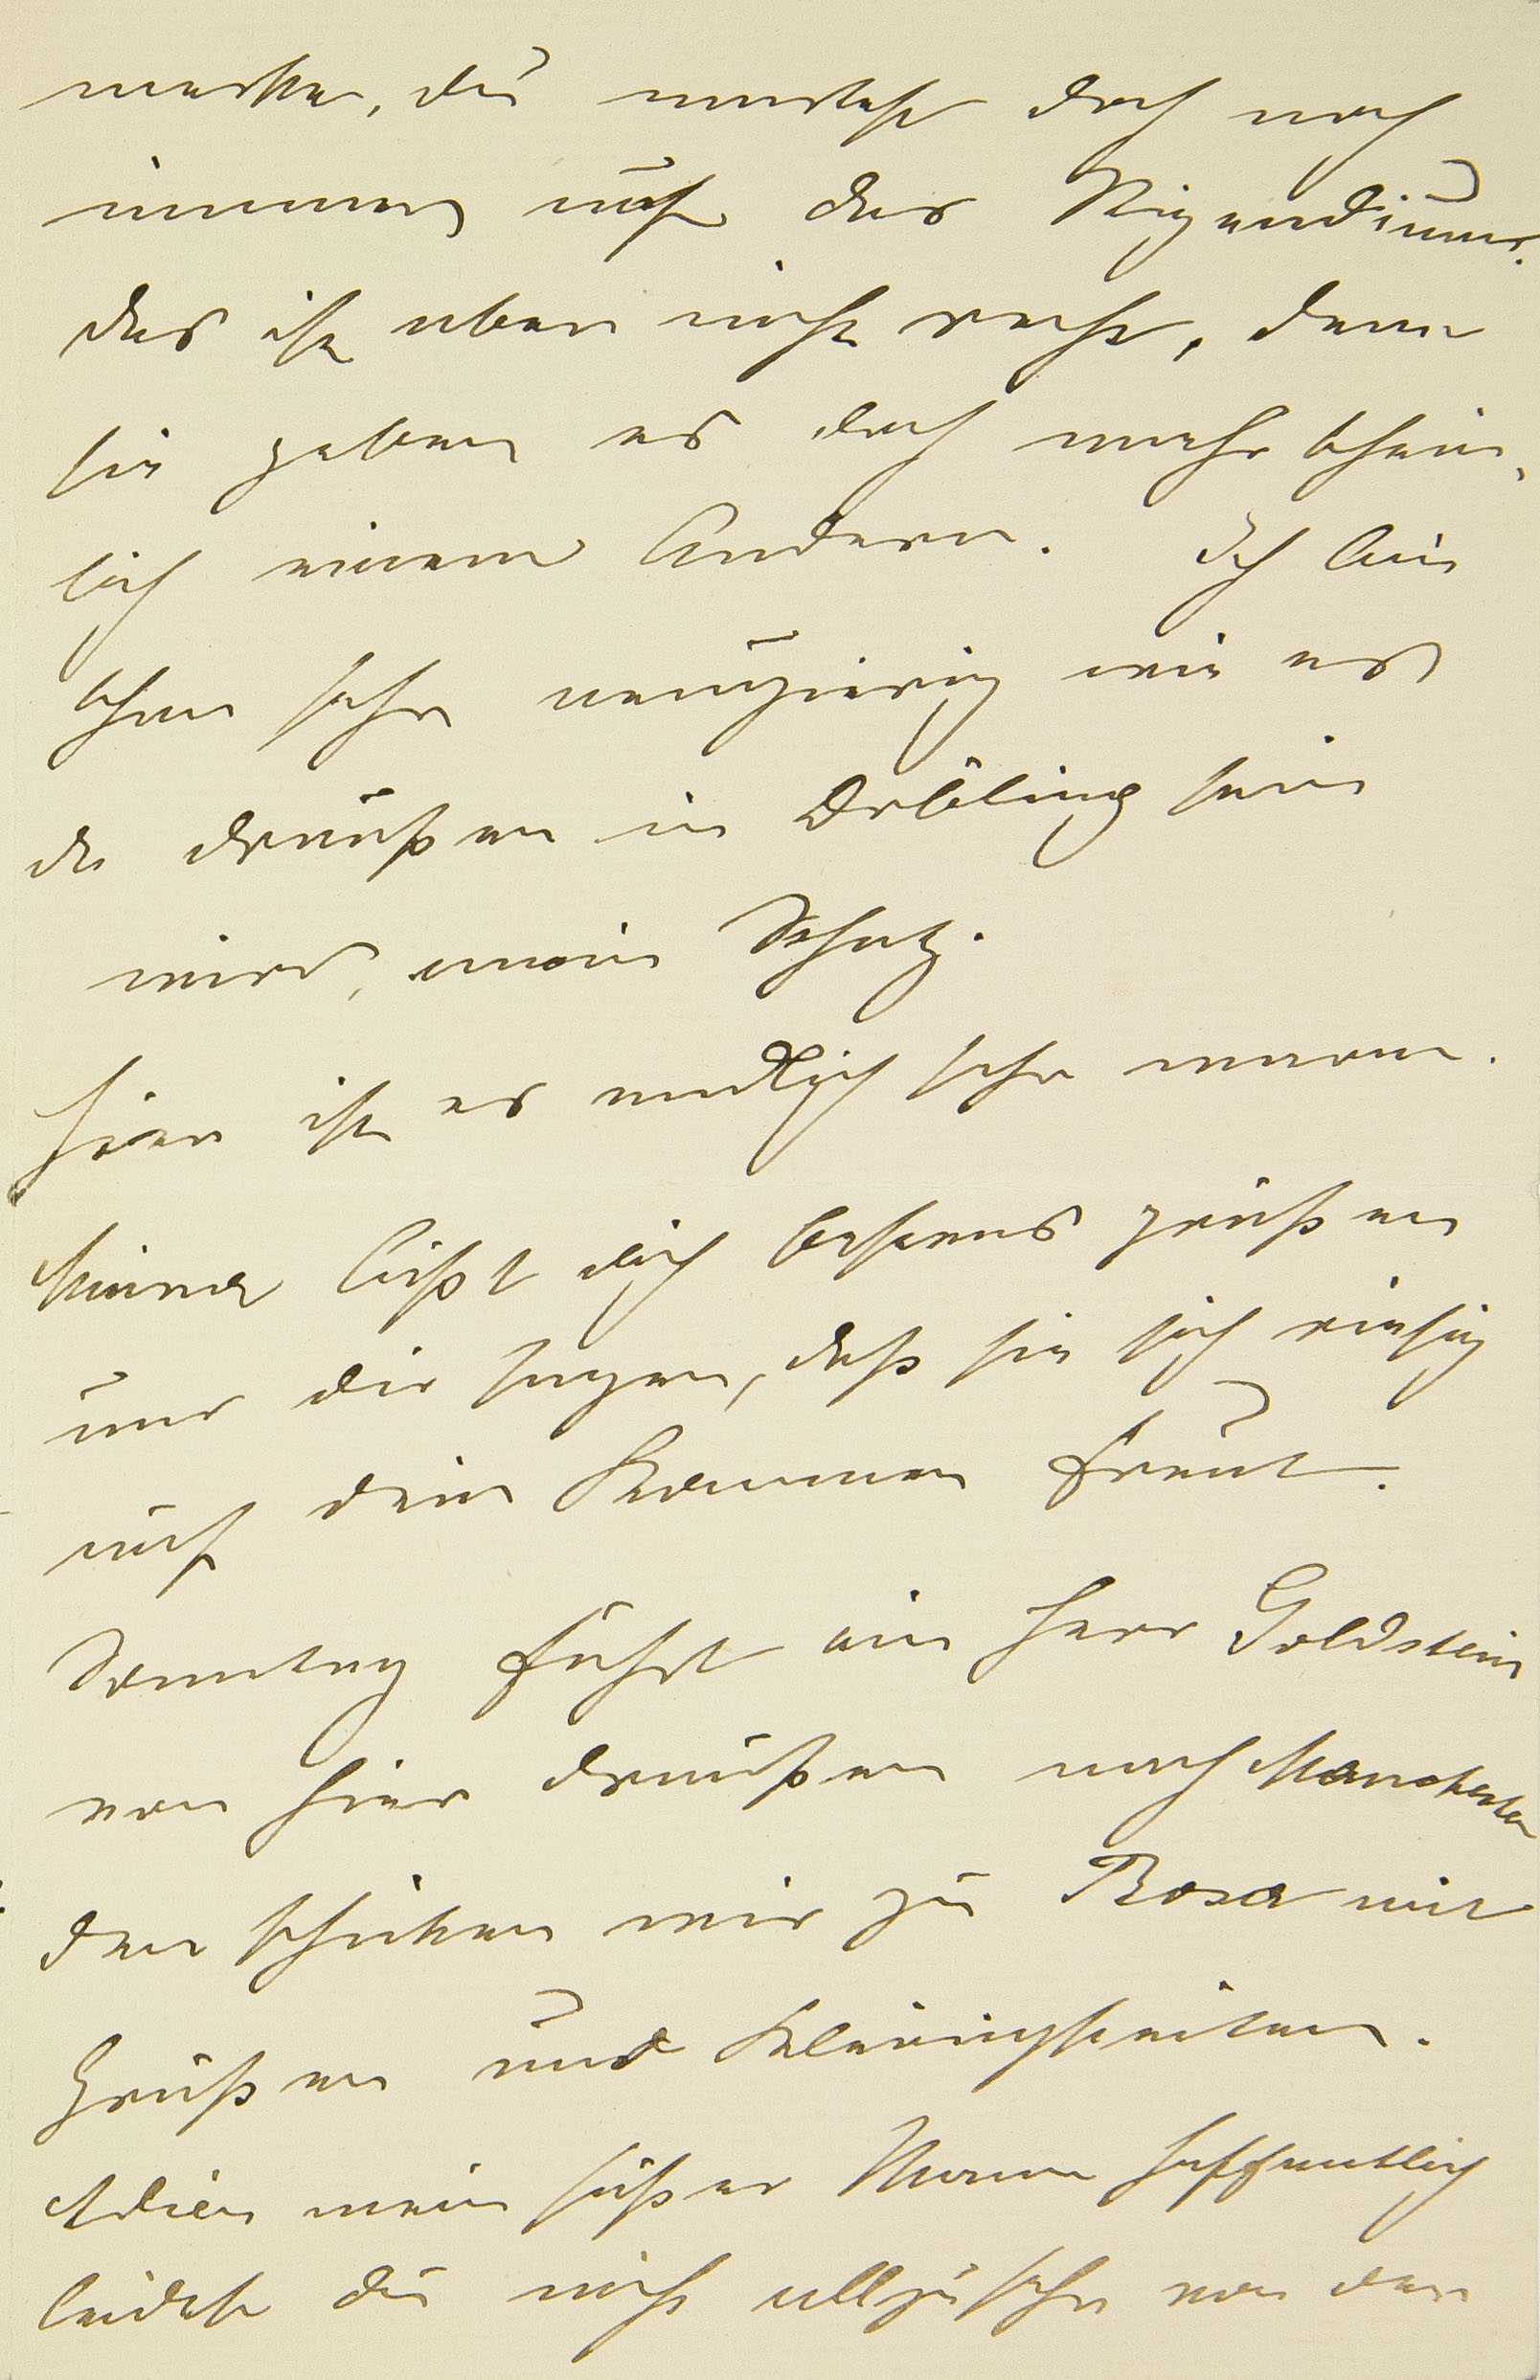 warten, du wartest doch noch
immer auf das Stipendium.
Das ist aber nicht recht, denn
sie geben es doch wahrschein-
lich einem Andern. Ich bin
schon sehr neugierig wie es
da draußen in Döbling sein
wird, mein Schatz.
Hier ist es endlich sehr warm.
Minna läßt dich bestens grüßen
und dir sagen, daß sie sich riesig
auf dein Kommen freut.
Sonntag fährt ein Herr Goldstein
von hier draußen nach Manchester
den schicken wir zu Rosa mit
Grüßen und Kleinigkeiten.
Adieu mein süßer Mann hoffentlich
leidest du nicht allzusehr von der